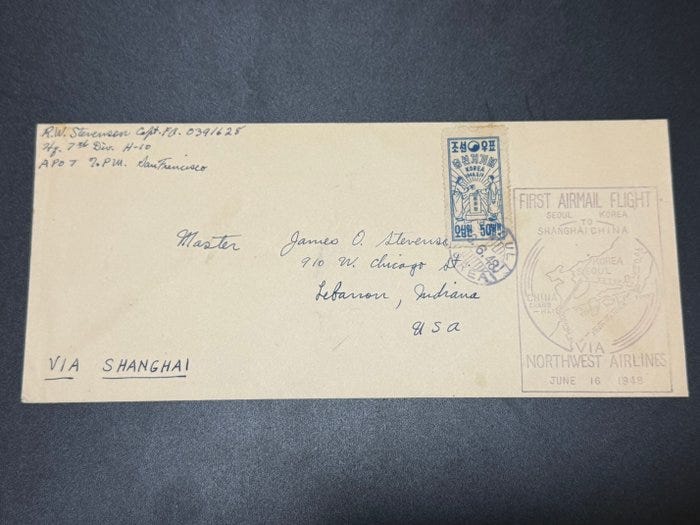 R.W. Stevenson Capt. FA. 0391628
Hq. 7th Div. H-10
APO 7 % P.M. San Francisco
조선우표
KOREA
1948.5.10
50
6.48
FIRST AIRMAIL FLIGHT
SEOUL KOREA
TO
SHANGHAI CHINA
KOREA
SEOUL
CHINA
SHANG-
HAI
VIA
NORTHWEST AIRLINES
JUNE 16 1948
Master James O. Stevenson
910 W. Chicago St
Lebanon, Indiana
USA
VIA SHANGHAI